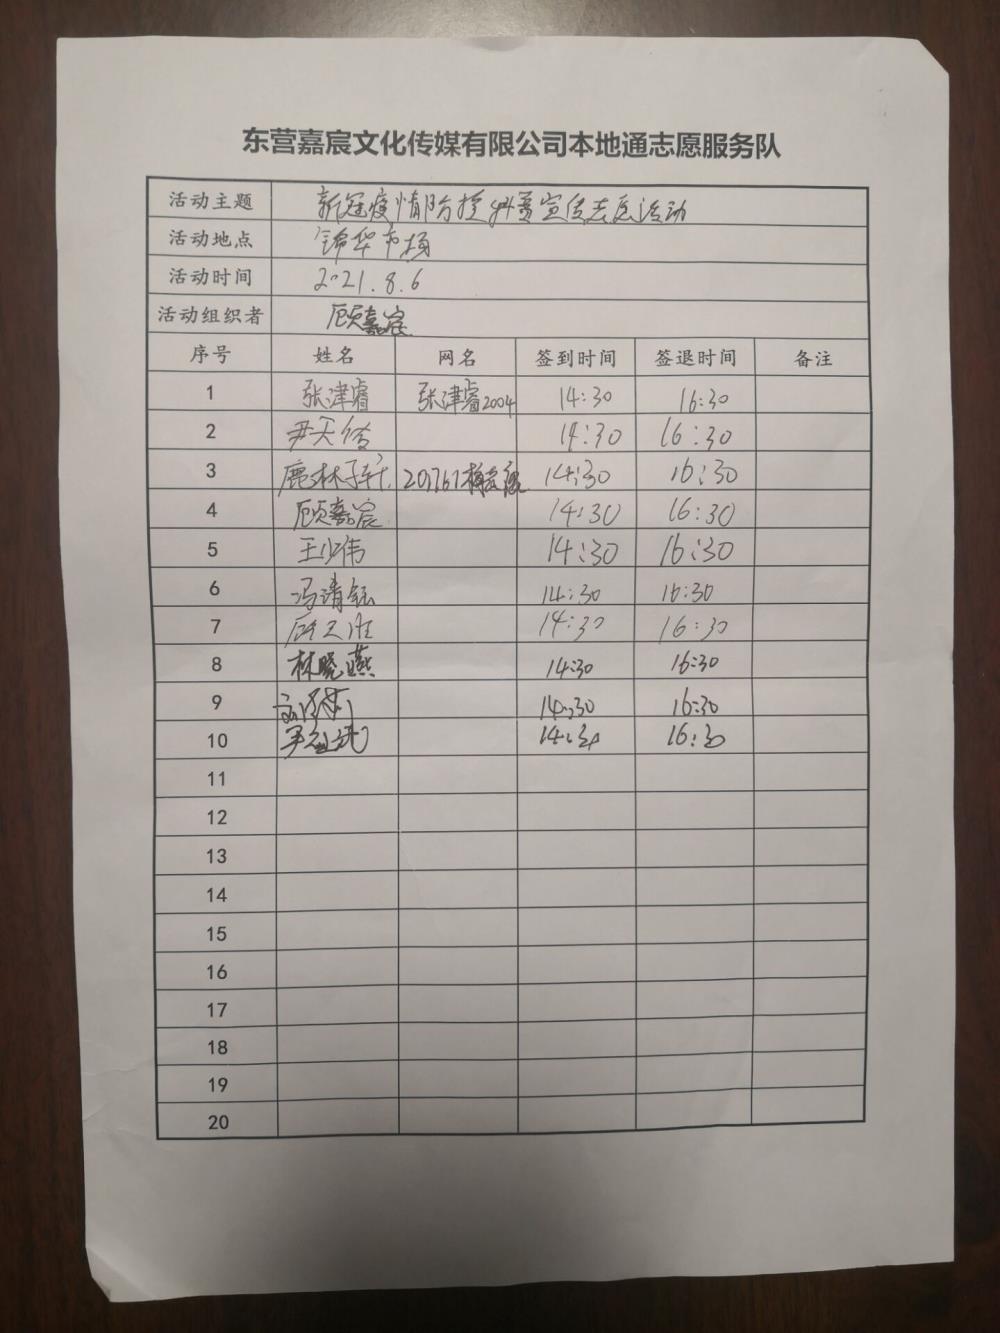 东营嘉宸文化传媒有限公司本地通志愿服务队
活动主题 新冠疫情防控科普宣传志愿活动
活动地点 锦华市场
活动时间 2021.8.6
活动组织者 顾嘉宸
序号 姓名 网名 签到时间 签退时间 备注
1 张津睿 张津睿2004 14:30 16:30
2 尹天 14:30 16:30
3 鹿林子轩 14:30 16:30
4 顾嘉宸 14:30 16:30
5 王少伟 14:30 16:30
6 冯清钰 14:30 16:30
7 14:30 16:30
8 林晓燕 14:30 16:30
9 14:30 16:30
10 14:30 16:30
11
12
13
14
15
16
17
18
19
20